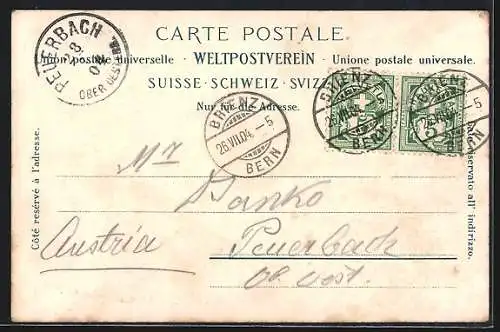 CARTE POSTALE.
Union postale universelle · WELTPOSTVEREIN · Unione postale universale.
SUISSE · SCHWEIZ · SVIZZERA
Nur für die Adresse.
Côté reservé à l'adresse.
Lato riservato all' indirizzo.
PEUERBACH
OBER OEST
BRIENZ
26.VII.04.–5
BERN
BRIENZ
26.VII.04
BERN
BRIENZ
VII.04.–5
BERN
Mr
Danko
Austria
Peuerbach
Ob. oest.